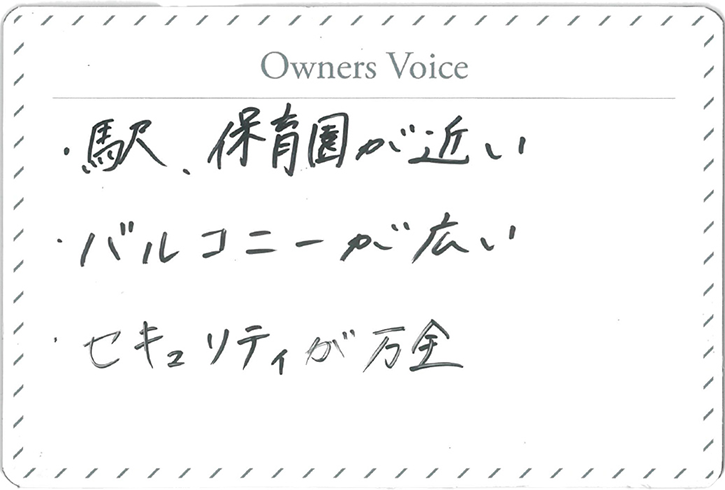 Owners Voice
・駅、保育園が近い
・バルコニーが広い
・セキュリティが万全